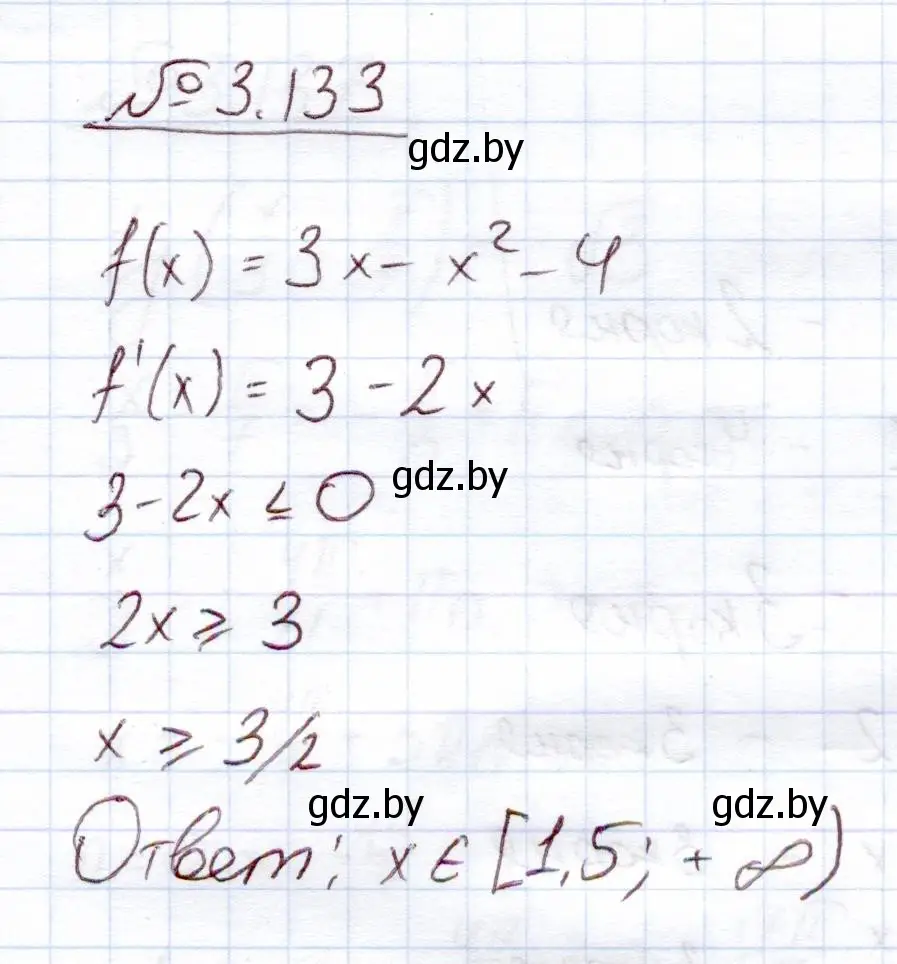 № 3.133
gdz.by
f(x) = 3x - x² - 4
f'(x) = 3 - 2x
3 - 2x ≤ 0 gdz.by
2x ⩾ 3
x ⩾ 3/2
gdz.by gdz.by
Ответ: x ∈ [1,5; + ∞)